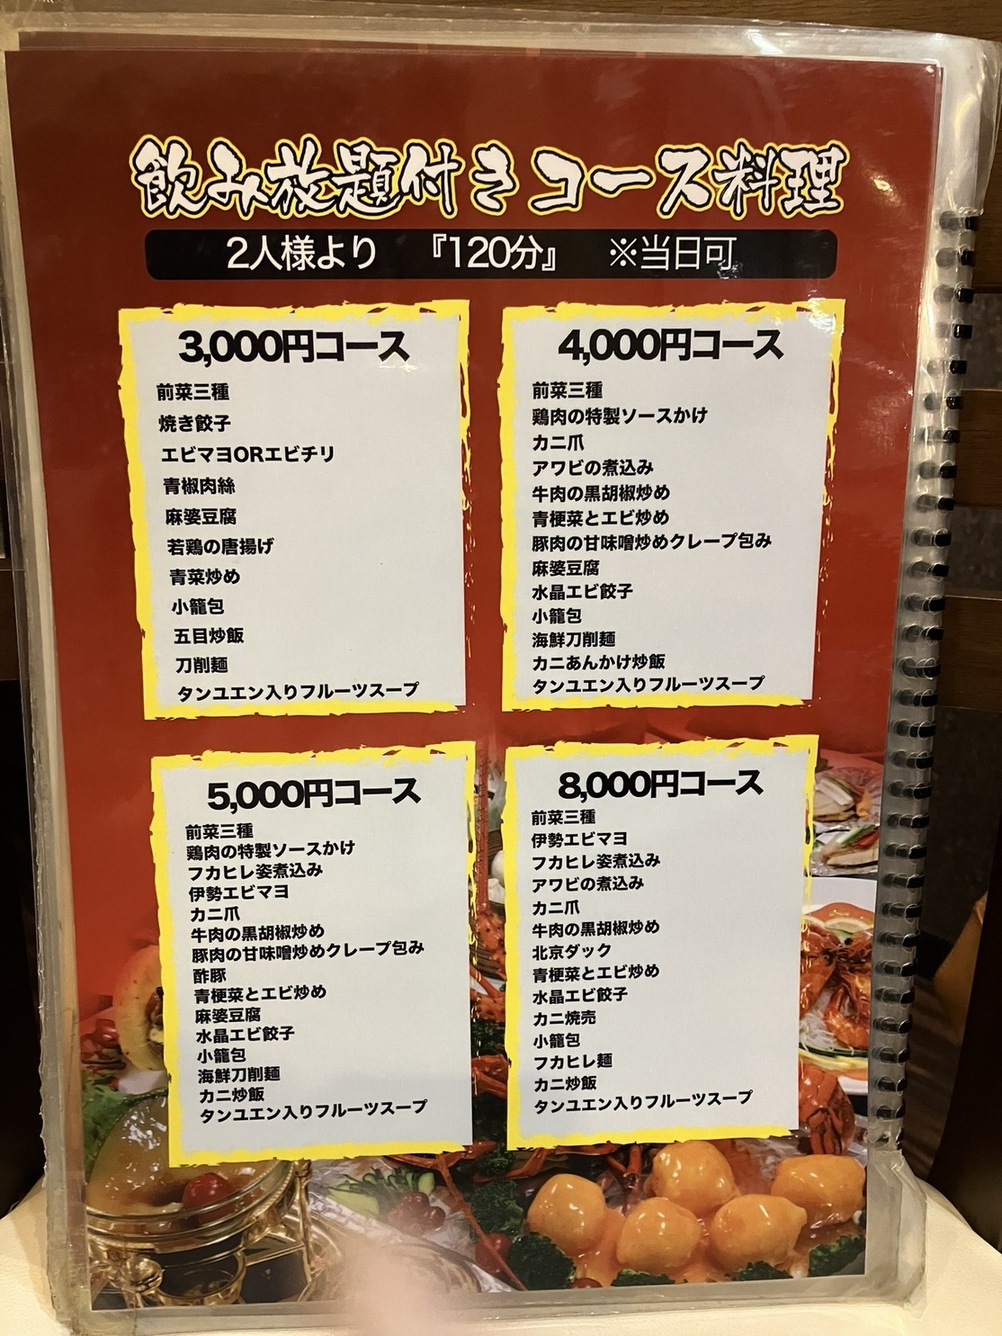 飲み放題付きコース料理
2人様より 『120分』 ※当日可
3,000円コース
前菜三種
焼き餃子
エビマヨORエビチリ
青椒肉絲
麻婆豆腐
若鶏の唐揚げ
青菜炒め
小籠包
五目炒飯
刀削麺
タンユエン入りフルーツスープ
4,000円コース
前菜三種
鶏肉の特製ソースかけ
カニ爪
アワビの煮込み
牛肉の黒胡椒炒め
青梗菜とエビ炒め
豚肉の甘味噌炒めクレープ包み
麻婆豆腐
水晶エビ餃子
小籠包
海鮮刀削麺
カニあんかけ炒飯
タンユエン入りフルーツスープ
5,000円コース
前菜三種
鶏肉の特製ソースかけ
フカヒレ姿煮込み
伊勢エビマヨ
カニ爪
牛肉の黒胡椒炒め
豚肉の甘味噌炒めクレープ包み
酢豚
青梗菜とエビ炒め
麻婆豆腐
水晶エビ餃子
小籠包
海鮮刀削麺
カニ炒飯
タンユエン入りフルーツスープ
8,000円コース
前菜三種
伊勢エビマヨ
フカヒレ姿煮込み
アワビの煮込み
カニ爪
牛肉の黒胡椒炒め
北京ダック
青梗菜とエビ炒め
水晶エビ餃子
カニ焼売
小籠包
フカヒレ麺
カニ炒飯
タンユエン入りフルーツスープ